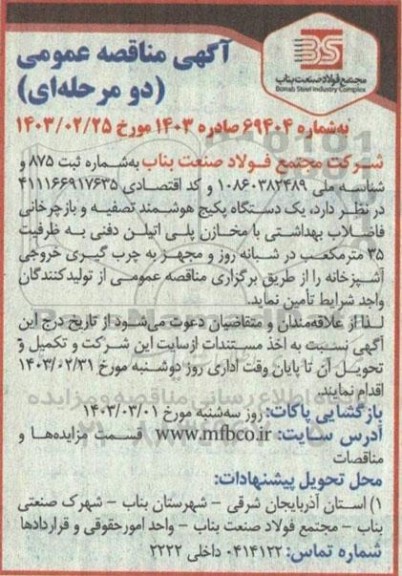 BS
مجتمع فولاد صنعت بناب
Bonab Steel Industry Complex
آگهی مناقصه عمومی
(دو مرحله‌ای)
به‌شماره ۶۹۴۰۴ صادره ۱۴۰۳ مورخ ۱۴۰۳/۰۲/۲۵
شرکت مجتمع فولاد صنعت بناب به‌شماره ثبت ۸۷۵ و
شناسه ملی ۱۰۸۶۰۳۸۲۴۸۹ و کد اقتصادی ۴۱۱۱۶۶۹۱۷۶۳۵
در نظر دارد، یک دستگاه پکیج هوشمند تصفیه و بازچرخانی
فاضلاب بهداشتی با مخازن پلی اتیلن دفنی به ظرفیت
۳۵ مترمکعب در شبانه روز و مجهز به چرب گیری خروجی
آشپزخانه را از طریق برگزاری مناقصه عمومی از تولیدکنندگان
واجد شرایط تأمین نماید.
لذا از علاقه‌مندان و متقاضیان دعوت می‌شود از تاریخ درج این
آگهی نسبت به اخذ مستندات ازسایت این شرکت و تکمیل و
تحویل آن تا پایان وقت اداری روز دوشنبه مورخ ۱۴۰۳/۰۲/۳۱
اقدام نمایند.
بازگشایی پاکات: روز سه‌شنبه مورخ ۱۴۰۳/۰۳/۰۱
آدرس سایت: www.mfbco.ir قسمت مزایده‌ها و
مناقصات
محل تحویل پیشنهادات:
۱) استان آذربایجان شرقی - شهرستان بناب - شهرک صنعتی
بناب - مجتمع فولاد صنعت بناب - واحد امورحقوقی و قراردادها
شماره تماس: ۰۴۱۴۱۲۲ داخلی ۲۲۲۲